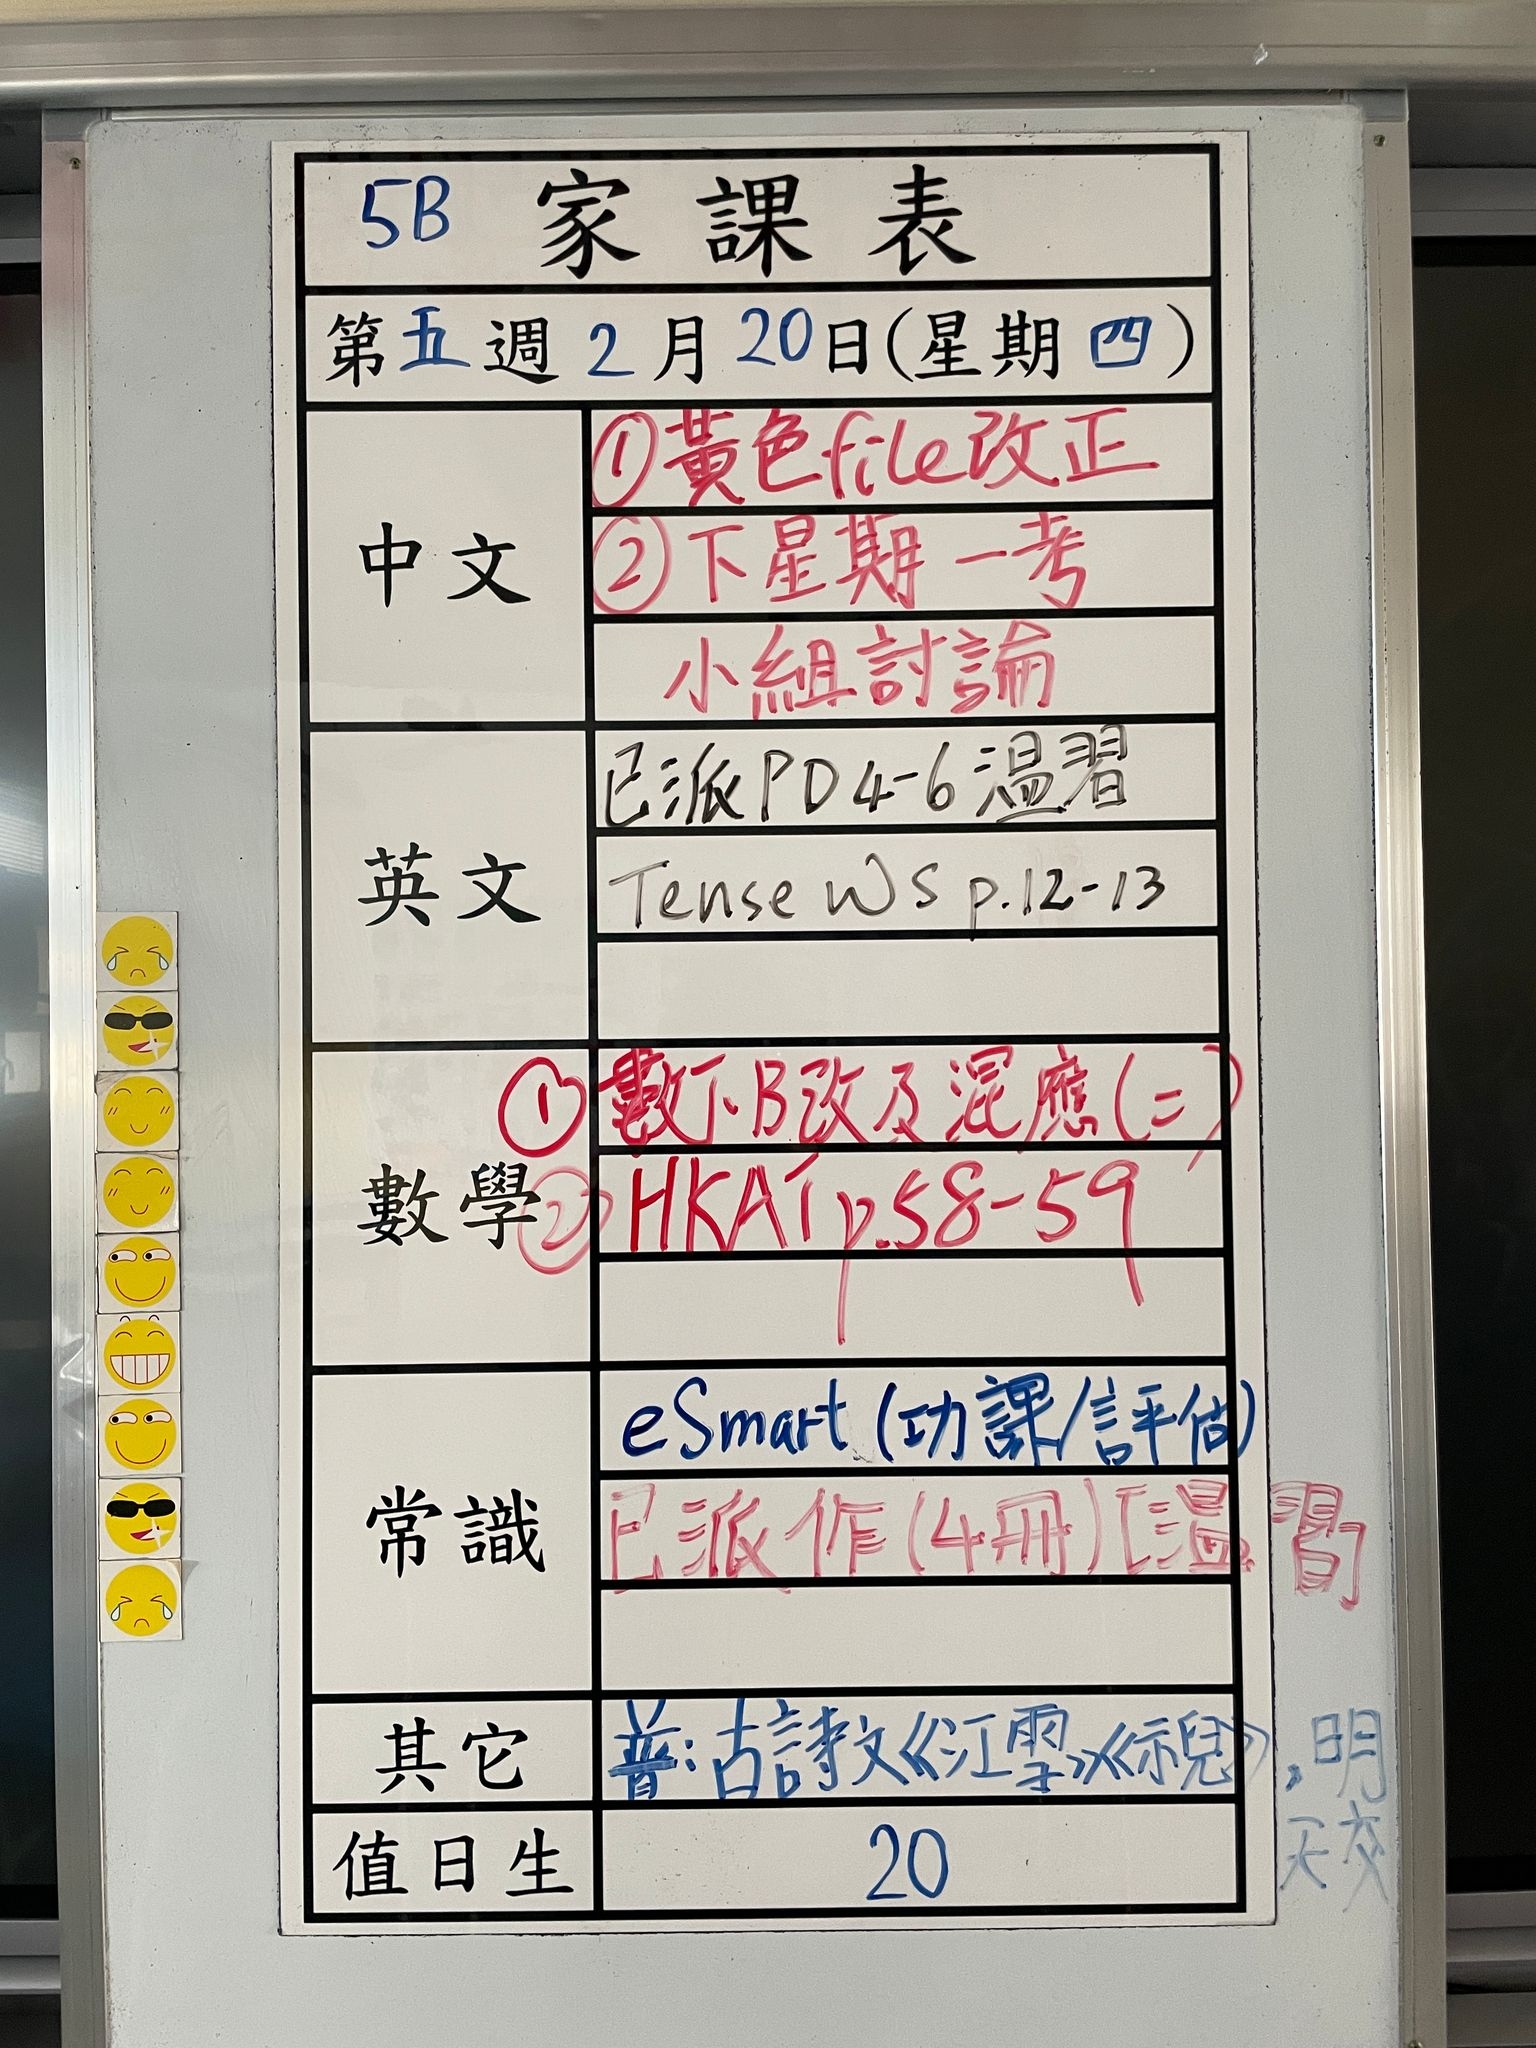 5B 家課表
第五週2月20日(星期四)
中文
①黃色file改正
②下星期一考
小組討論
英文
已派PD4-6溫習
Tense WS p.12-13
數學
①數下B改及混應(二)
②HKAT p.58-59
常識
eSmart(功課/評估)
已派作(4冊)[溫習]
其它
普:古詩文《江雪》《示兒》,明
天交
值日生
20